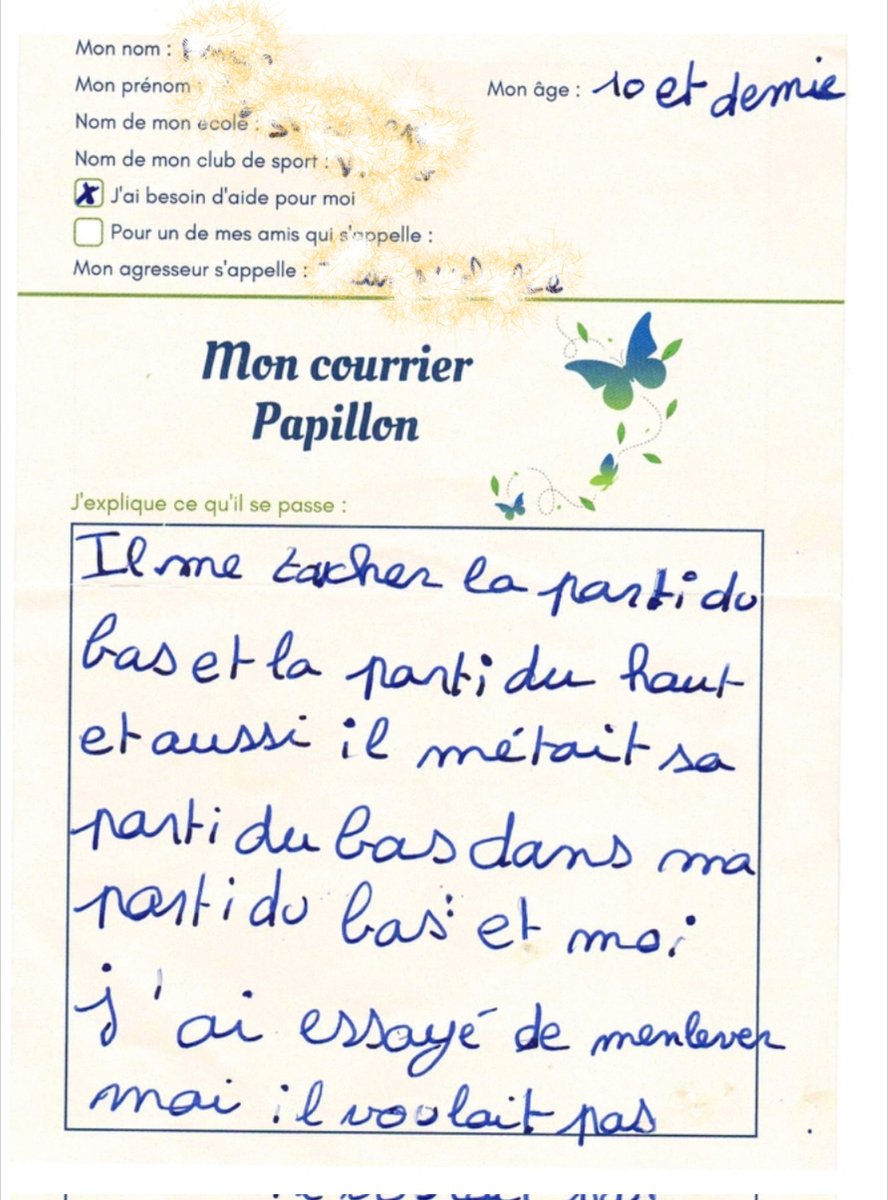 Mon nom :
Mon prénom :
Mon âge : 10 et demie
Nom de mon école :
Nom de mon club de sport :
J'ai besoin d'aide pour moi
Pour un de mes amis qui s'appelle :
Mon agresseur s'appelle :
Mon courrier
Papillon
J'explique ce qu'il se passe :
Il me tacher la parti du
bas et la parti du haut
et aussi il métait sa
parti du bas dans ma
parti du bas et moi
j'ai essayé de menlever
mai il voulait pas